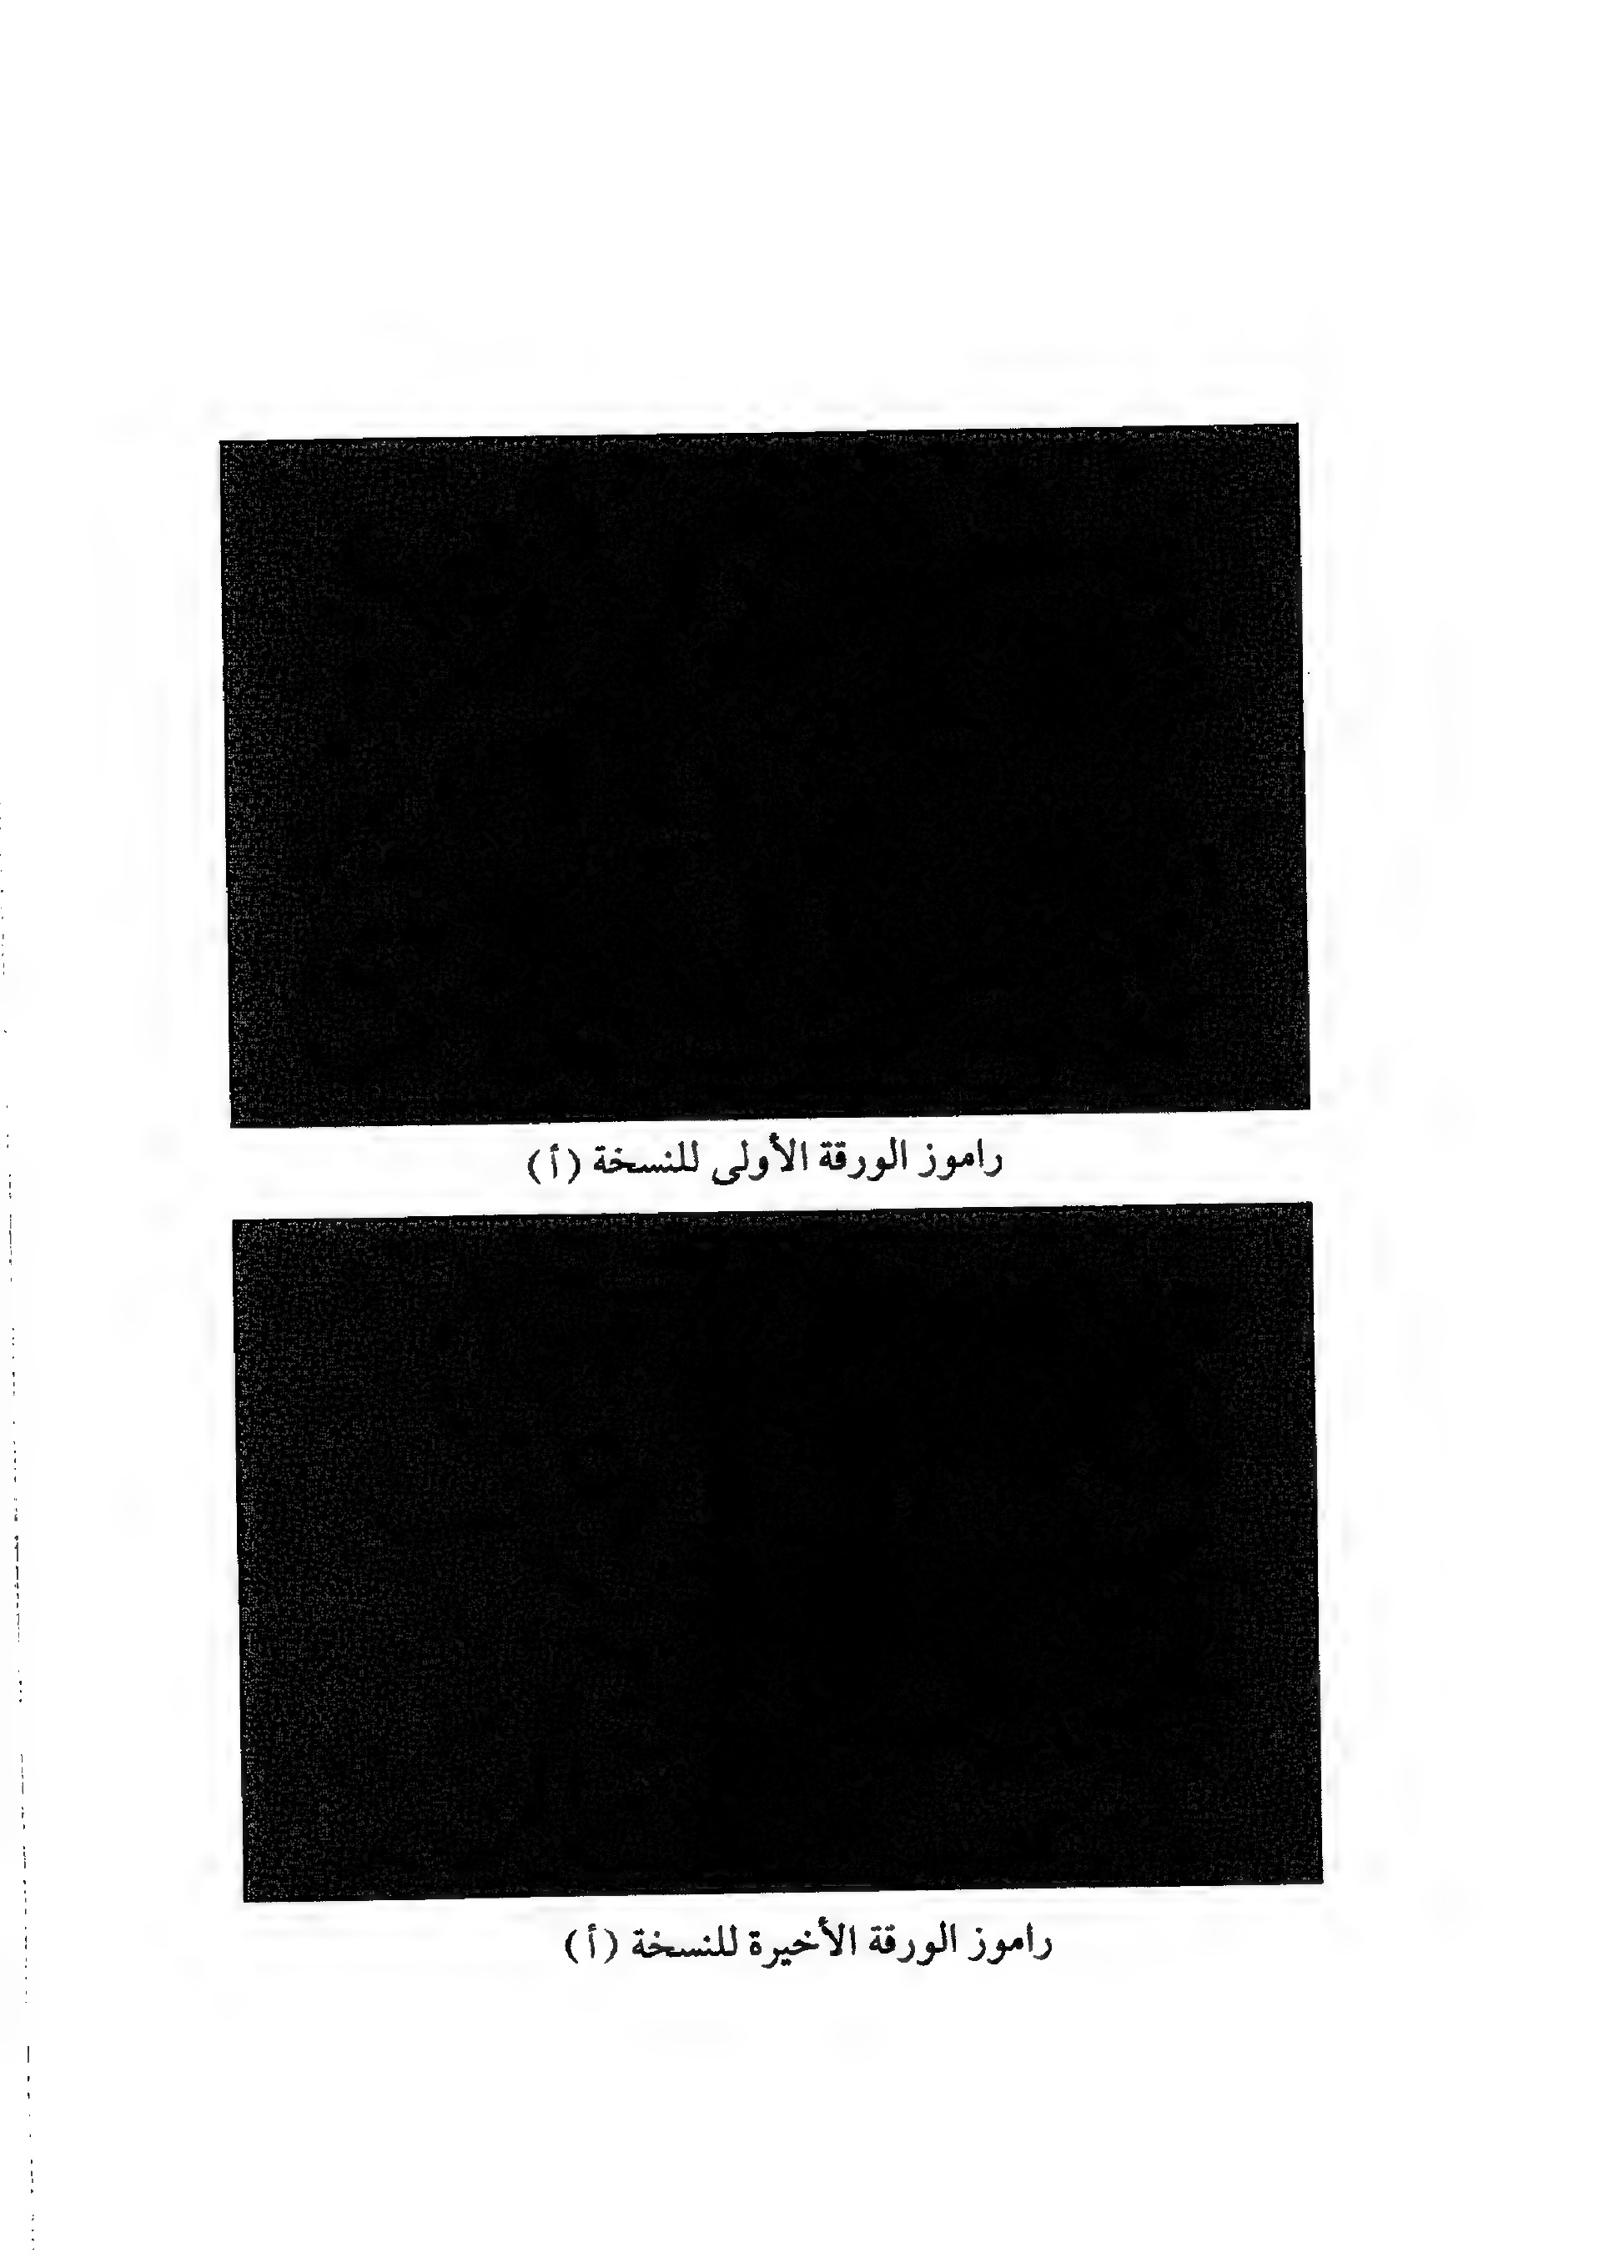 راموز الورقة الأولى للنسخة (أ)
راموز الورقة الأخيرة للنسخة (أ)